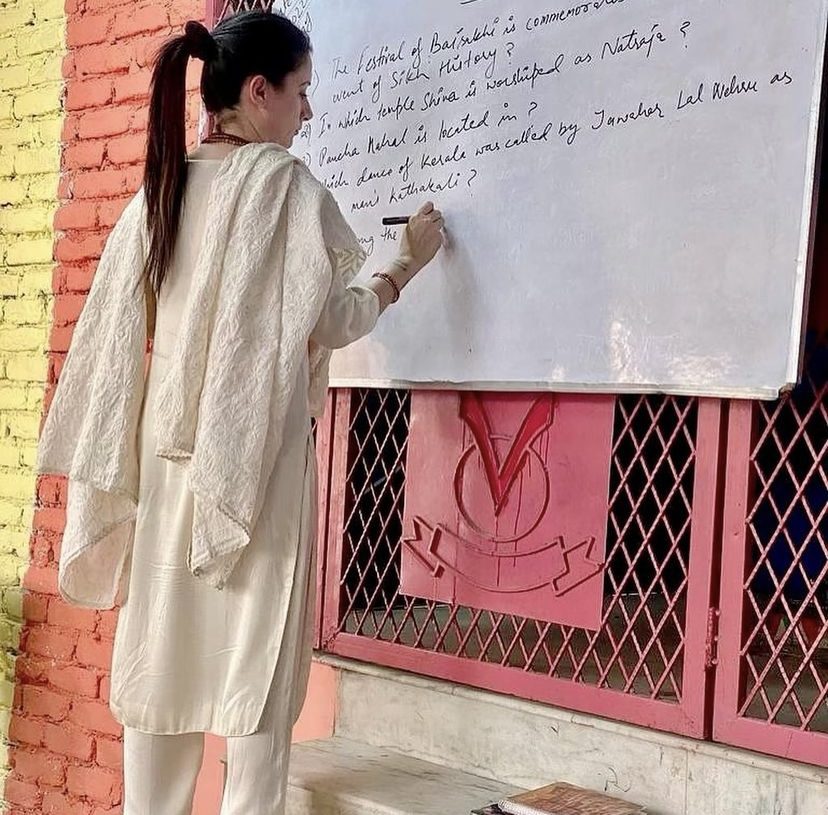 The Festival of Baisakhi is commemora
event of Sikh History?
2) In which temple Shiva is worshiped as Natraja ?
Pancha Mahal is located in ?
which dance of Kerala was called by Jawahar Lal Nehru as
man's Kathakali ?
ng the